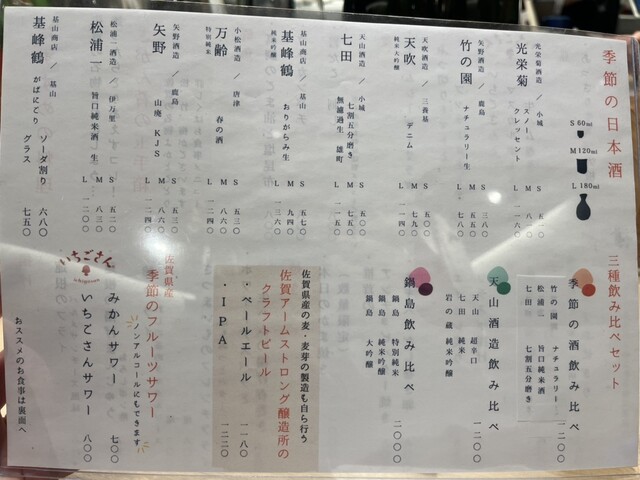 季節の日本酒
S 60ml
M 120ml
L 180ml
光栄菊酒造／小城
光栄菊
スノークレッセント
S 五一〇
M 八一〇
L 一一六〇
矢野酒造／鹿島
竹の園
ナチュラリー生
S 三八〇
M 五七〇
L 七八〇
天吹酒造／三養基
天吹
純米大吟醸
デニム
S 五〇〇
M 七九〇
天山酒造／小城
七田
七割五分磨き
無濾過生 雄町
S 五〇〇
M 七五〇
基山商店／基山
基峰鶴
純米吟醸
おりがらみ生
S 五七〇
M 九四〇
L 一三六〇
小松酒造／唐津
万齢
特別純米
春の酒
S 五三〇
M 八六〇
矢野酒造／鹿島
矢野
山廃 KJS
S 五三〇
M 八六〇
L 一二四〇
松浦一酒造／伊万里
松浦一
旨口純米酒 生
S 五二〇
M 八三〇
L 一二〇〇
基山商店／基山
基峰鶴
がばにどり
ソーダ割り 六八〇
グラス 七五〇
三種飲み比べセット
季節の酒飲み比べ 一二〇〇
竹の園 ナチュラリー
松浦一 旨口純米酒
七田 七割五分磨き
天山酒造飲み比べ 一二〇〇
天山 超辛口
七田 純米
岩の蔵 純米吟醸
鍋島飲み比べ 二〇〇〇
鍋島 特別純米
鍋島 純米吟醸
鍋島 大吟醸
佐賀県産の麦・麦芽の製造も自ら行う
佐賀アームストロング醸造所の
クラフトビール
・ペールエール 一一八〇
・IPA 一二二〇
佐賀県産
季節のフルーツサワー
ノンアルコールにもできます
みかんサワー 七〇〇
いちごさん
いちごさんサワー 八〇〇
おススメのお食事は裏面へ